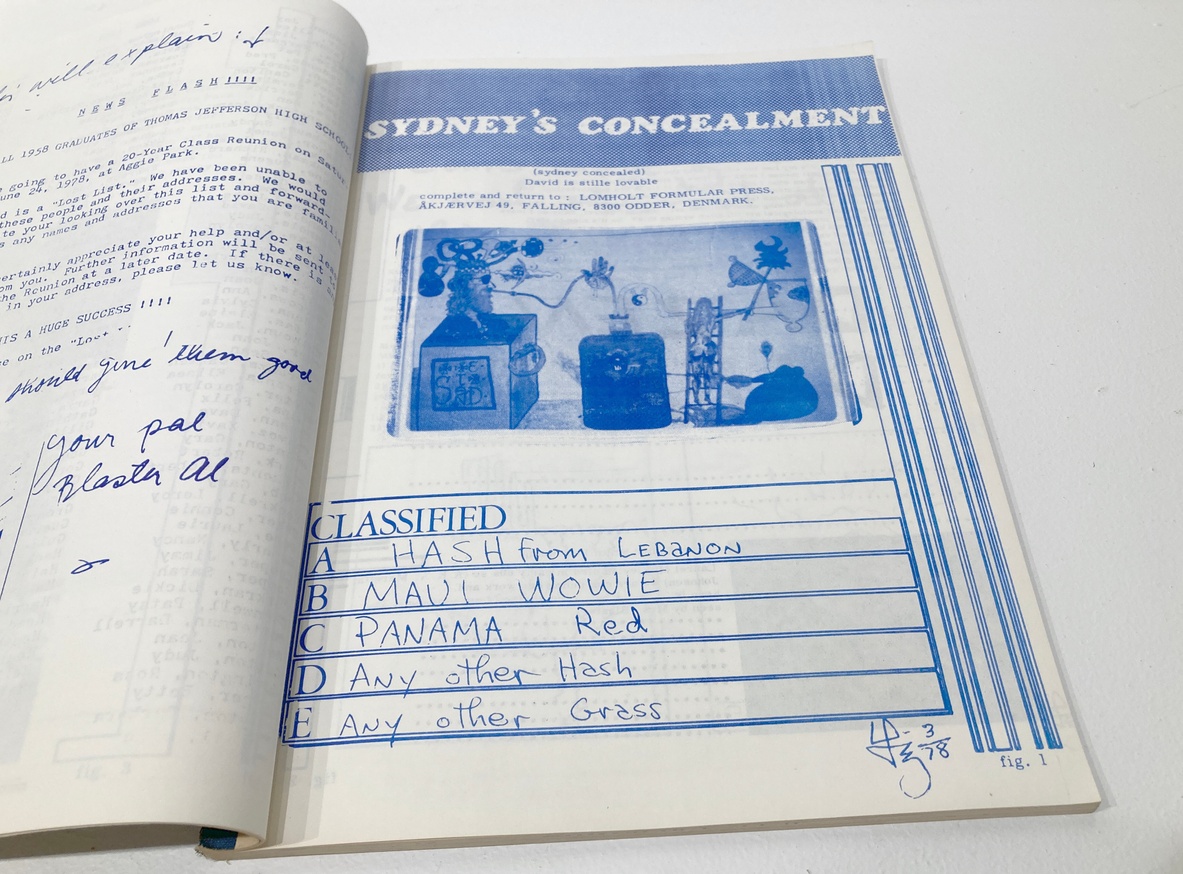 will explain :
NEWS FLASH!!!!
ALL 1958 GRADUATES OF THOMAS JEFFERSON HIGH SCHOOL
going to have a 20-Year Class Reunion on
24, 1978, at Aggie Park.
is a "Lost List." We have been unable to
these people and their addresses. We would
your looking over this list and forward-
any names and addresses that you are
appreciate your help and/or at
you. Further information will be sent
the Reunion at a later date. If there is
in your address, please let us know.
IS A HUGE SUCCESS !!!!
on the
should give them good
your pal
Blaster Al
SYDNEY'S CONCEALMENT
(sydney concealed)
David is stille lovable
complete and return to : LOMHOLT FORMULAR PRESS,
ÅKJÆRVEJ 49, FALLING, 8300 ODDER, DENMARK.
CLASSIFIED
A HASH from LEBANON
B MAUI WOWIE
C PANAMA Red
D ANY other Hash
E ANY other Grass
3/78
fig. 1